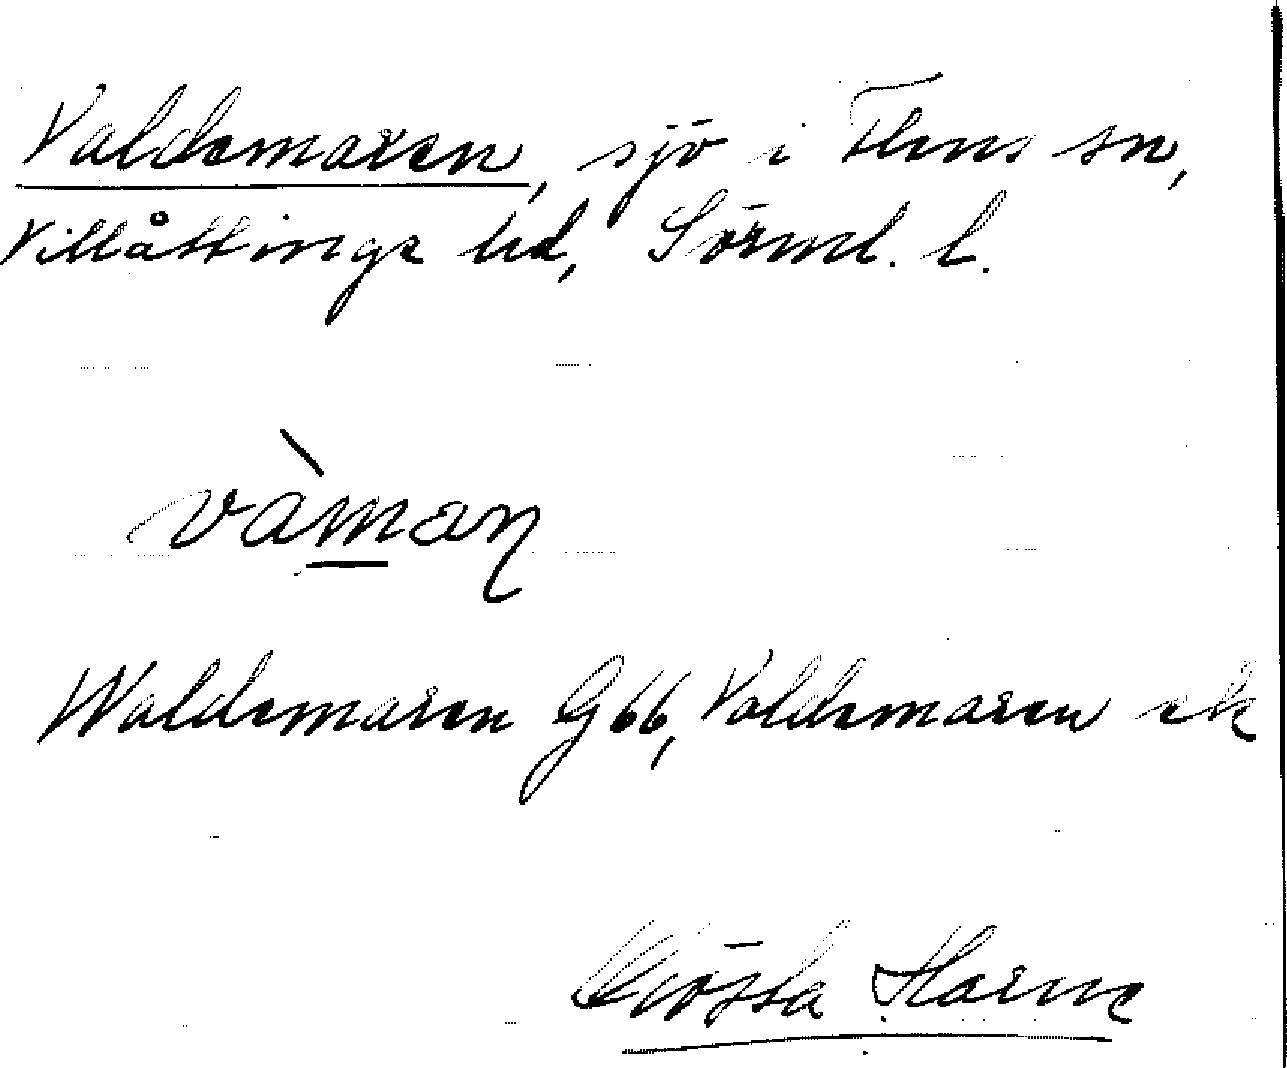 Valdemaren, sjö i Flens sn,
Villåttinge hd, Sörml. l.
vàman
Waldemaren G66, Valdemaren ek